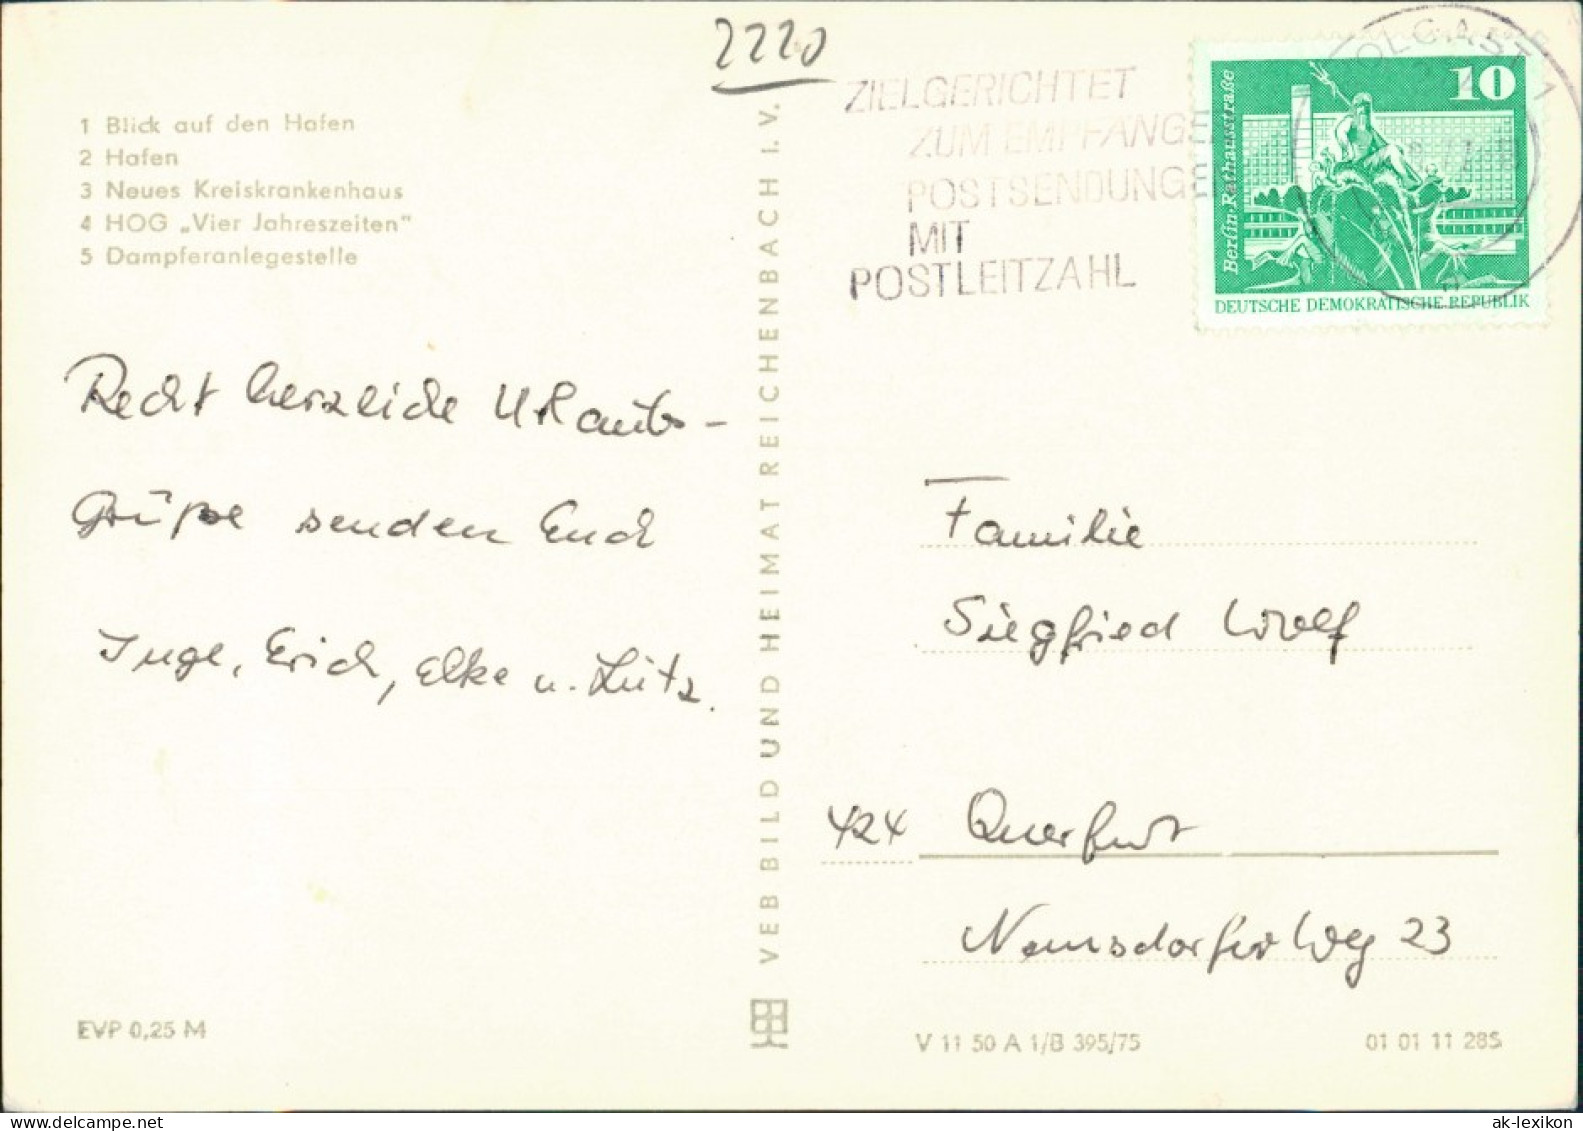 2220
1 Blick auf den Hafen
2 Hafen
3 Neues Kreiskrankenhaus
4 HOG „Vier Jahreszeiten"
5 Dampferanlegestelle
Recht herzliche Urlaubs-
Grüße senden Euch
Inge, Erich, Elke u. Lutz.
EVP 0,25 M
VEB BILD UND HEIMAT REICHENBACH I. V.
ZIELGERICHTET
ZUM EMPFÄNGE
POSTSENDUNGE
MIT
POSTLEITZAHL
OLGAST 1
10
Berlin-Rathausstraße
DEUTSCHE DEMOKRATISCHE REPUBLIK
Familie
Siegfried Wolf
424 Querfurt
Nemsdorfer Weg 23
V 11 50 A 1/B 395/75
01 01 11 285
ak-lexikon.com